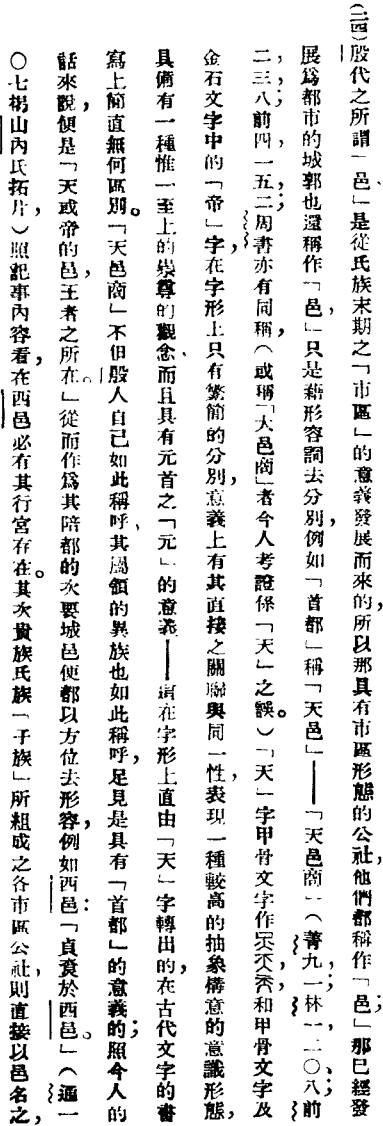 (二四)殷代之所謂「邑」、是從氏族末期之「市區」的意義發展而來的,所以那具有市區形態的公社,他們都稱作「邑」;那已經發
展爲都市的城郭也還稱作「邑」只是藉形容詞去分別,例如「首都」稱「天邑」——「天邑商」(菁九一;林一二〇八;前
二三八;前四一五二;周書亦有同稱,(或稱「大邑商」者今人考證係「天」之誤。)「天」字甲骨文字作,和甲骨文字及
金石文字中的「帝」字,在字形上只有繁簡的分別,意義上有其直接之關聯與同一性,表現一種較高的抽象構意的意識形態,
具備有一種惟一至上的崇尊的觀念、而且具有元首之「元」的意義——在字形上直由「天」字轉出的,在古代文字的書
寫上簡直無何區別。「天邑商」不但殷人自己如此稱呼、其屬領的異族也如此稱呼,足見是具有「首都」的意義的;照今人的
話來說,便是「天或帝的邑,王者之所在。」從而作爲其陪都的次要城邑,便都以方位去形容,例如西邑:「貞㞢於西邑。」(通一
〇七楊山內氏拓片)照記事內容看,在西邑必有其行宮存在。其次貴族氏族「子族」所組成之各市區公社,則直接以邑名之,